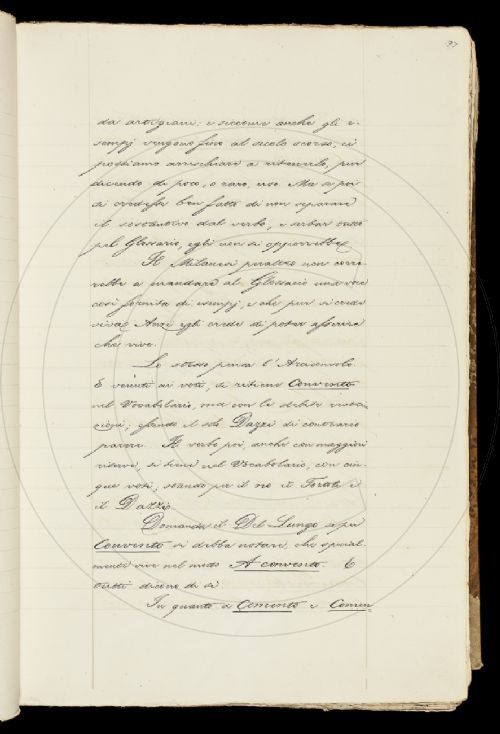 37
da artigiani: e siccome anche gli e-
sempj vengono fino al secolo scorso, ci
possiamo arrischiare a ritenerlo, pur
dicendo di poco, o raro, uso. Ma se poi
si credesse ben fatto di non separare
il sostantivo dal verbo, e serbar tutto
pel Glossario, egli non si opporrebbe.
Il Milanesi peraltro non corre-
rebbe a mandare al Glossario una voce
così fornita di esempj, e che pur si crede
viva. Anzi egli crede di poter asserire
che vive.
Lo stesso pensa l'Arciconsolo.
E venuti ai voti, si ritiene Convento
nel Vocabolario, ma con le debite
zioni; essendo il solo Dazzi di contrario
parere. Il verbo poi, anche con maggiori
riserve, si tiene nel Vocabolario, con cin-
que voti; stando per il no il Tortoli e
il Dazzi.
Domanda il Del-Lungo se per
Convento si debba notare, che special-
mente vive nel modo A convento. E
tutti dicono di sì.
In quanto a Comento e Comen